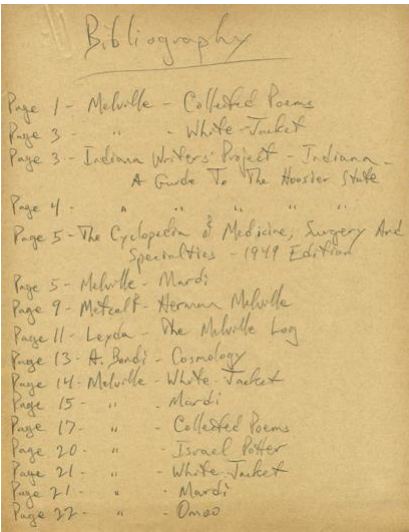 Bibliography
Page 1 - Melville - Collected Poems
Page 3 - " - White-Jacket
Page 3 - Indiana Writers' Project - Indiana -
A Guide To The Hoosier State
Page 4 - " " " " " "
Page 5 - The Cyclopedia of Medicine, Surgery And
Specialties - 1949 Edition
Page 5 - Melville - Mardi
Page 9 - Metcalf - Herman Melville
Page 11 - Leyda - The Melville Log
Page 13 - A. Bondi - Cosmology
Page 14 - Melville - White-Jacket
Page 15 - " - Mardi
Page 17 - " - Collected Poems
Page 20 - " - Israel Potter
Page 21 - " - White-Jacket
Page 21 - " - Mardi
Page 22 - " - Omoo